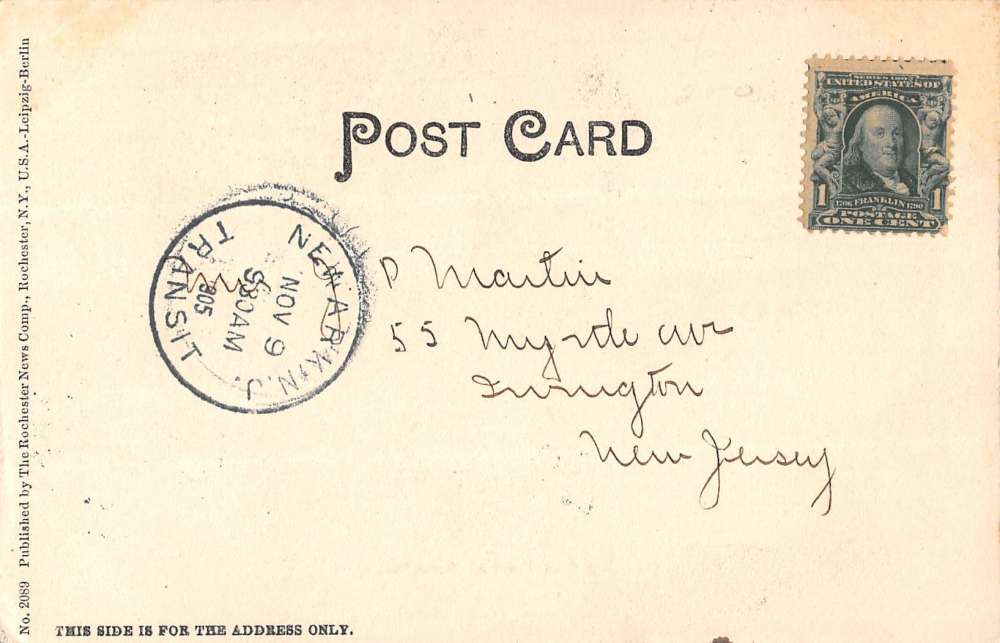 POST CARD
SERIES 1902
UNITED STATES OF
AMERICA
1 1706 FRANKLIN 1790 1
POSTAGE
ONE CENT
NEWARK, N.J.
NOV 9
530AM
905
TRANSIT
P Martin
55 Myrtle ave
Irvington
New Jersey
No. 2089 Published by The Rochester News Comp., Rochester, N.Y., U.S.A.-Leipzig-Berlin
THIS SIDE IS FOR THE ADDRESS ONLY.